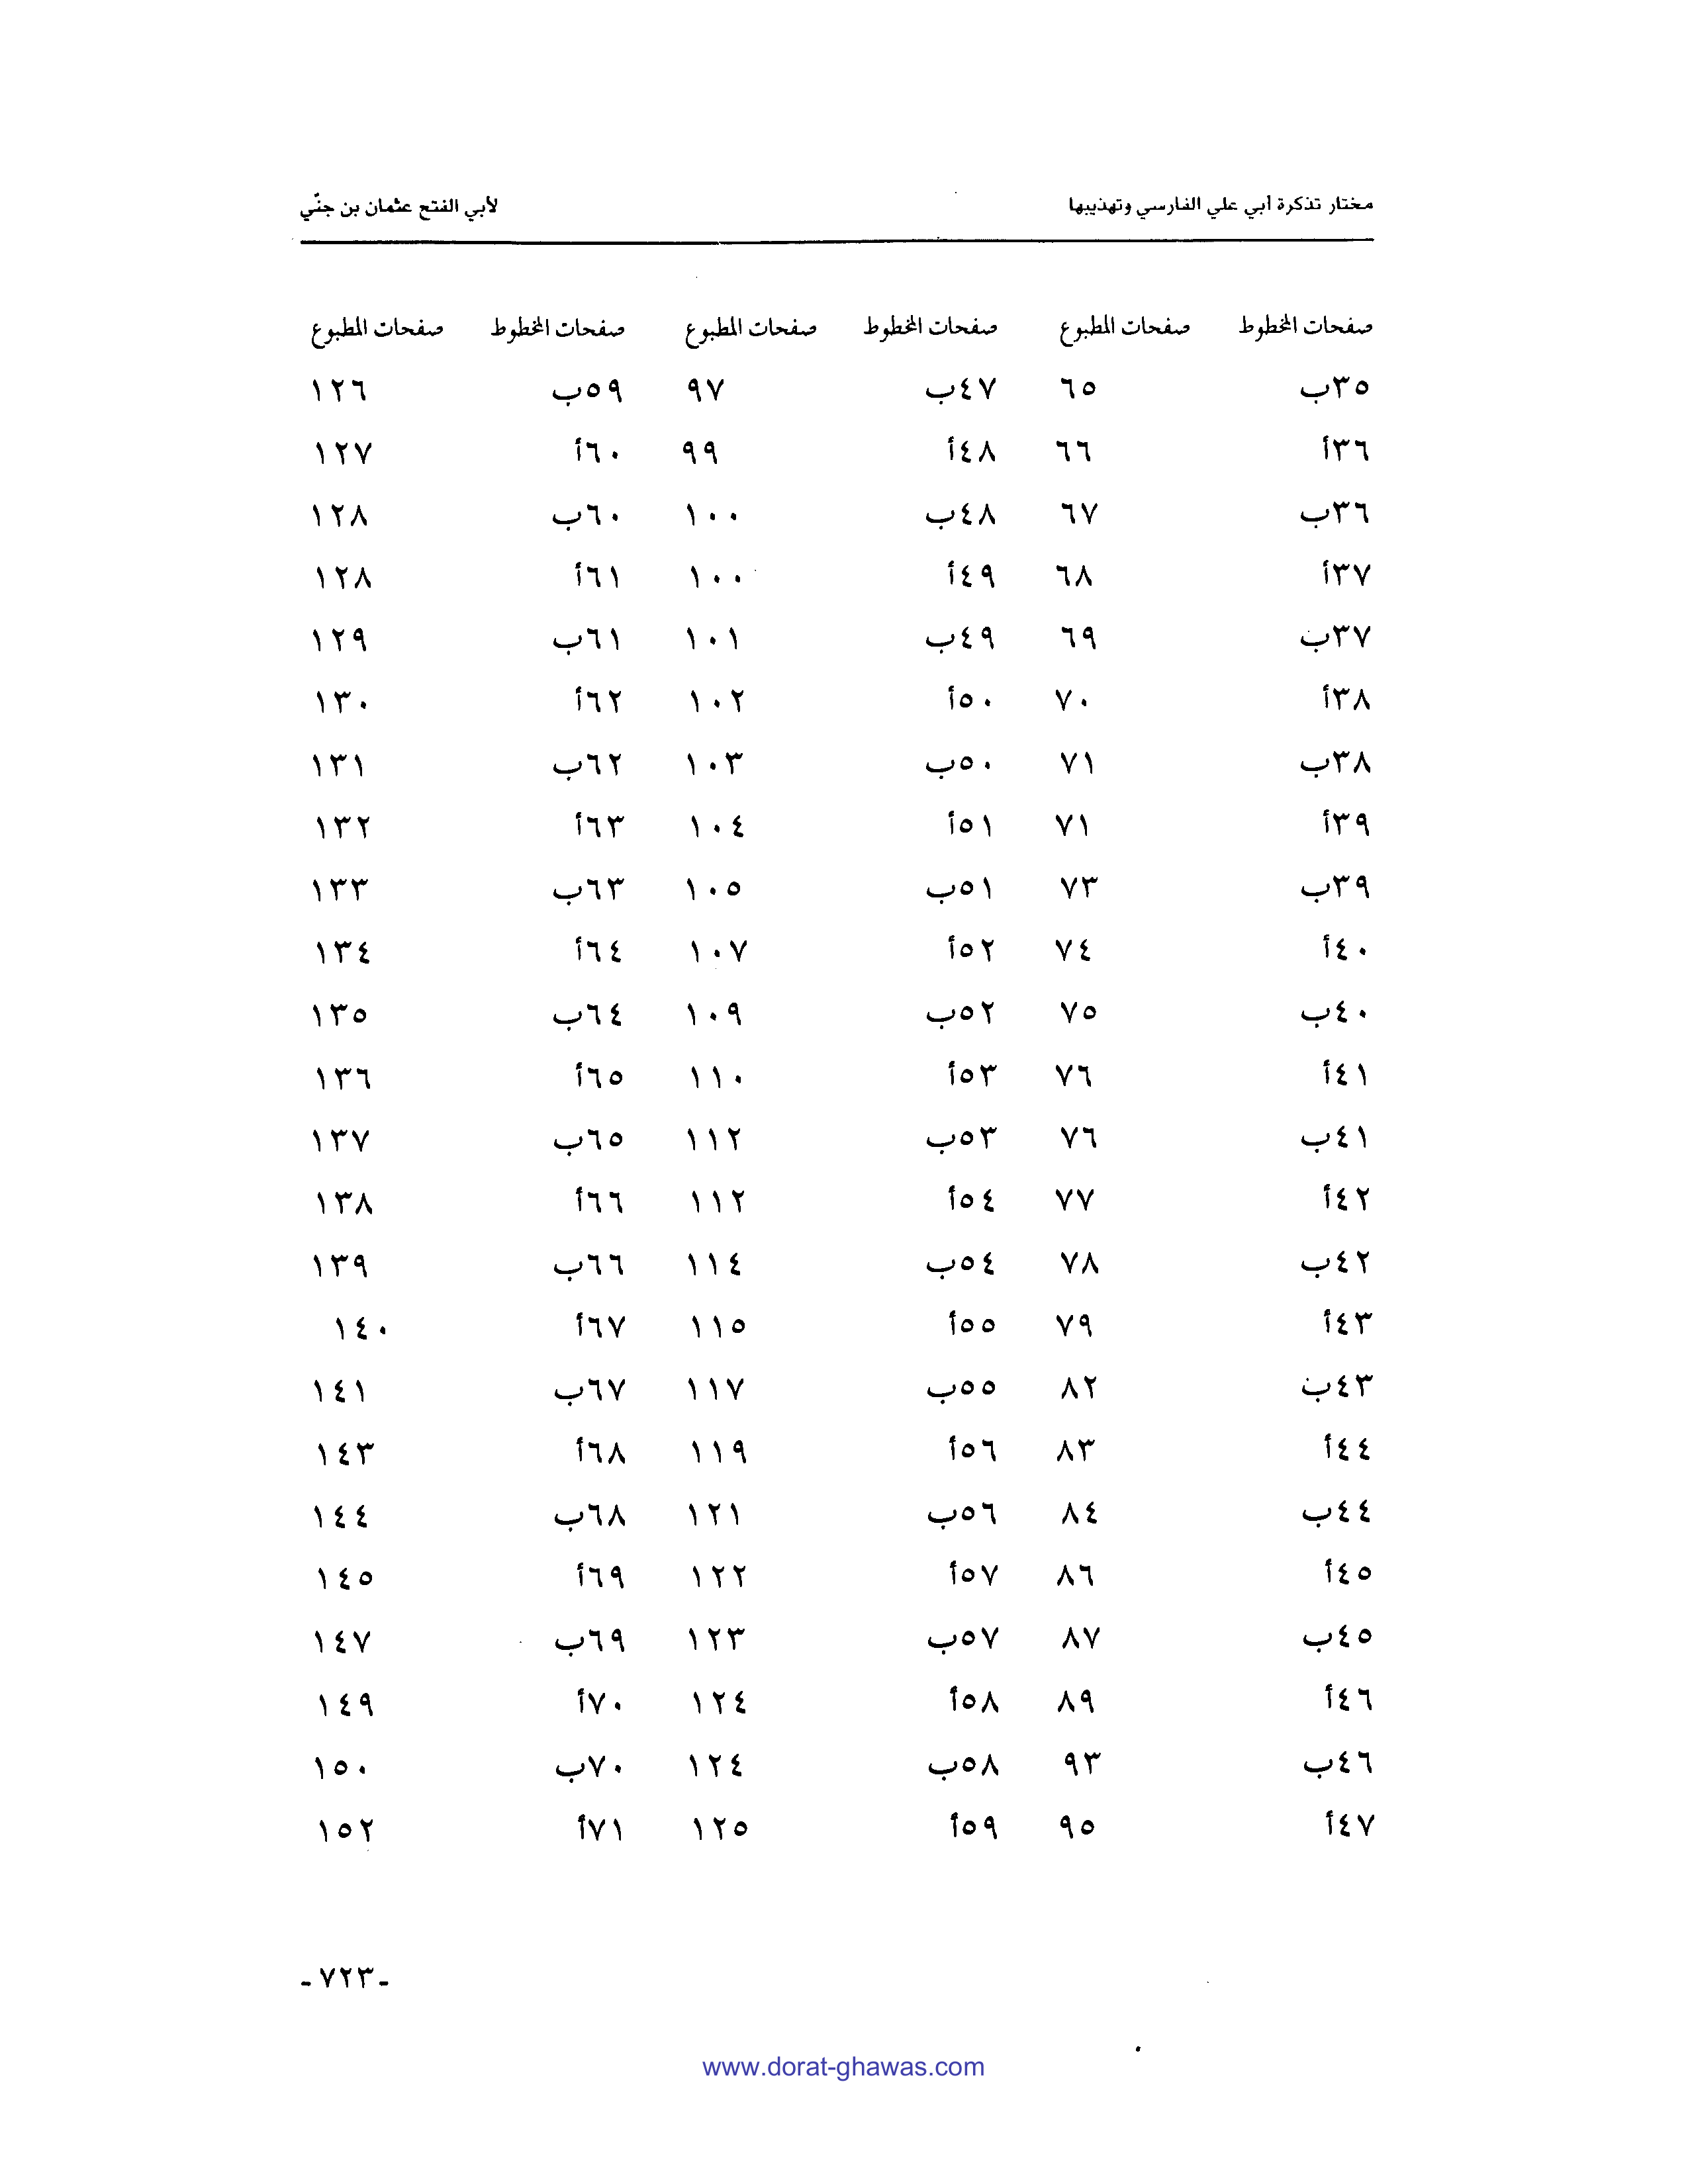 مختار تذكرة أبي علي الفارسي وتهذيبها لأبي الفتح عثمان بن جنّي
صفحات المخطوط صفحات المطبوع صفحات المخطوط صفحات المطبوع صفحات المخطوط صفحات المطبوع
٣٥ب ٦٥ ٤٧ب ٩٧ ٥٩ب ١٢٦
٣٦أ ٦٦ ٤٨أ ٩٩ ٦٠أ ١٢٧
٣٦ب ٦٧ ٤٨ب ١٠٠ ٦٠ب ١٢٨
٣٧أ ٦٨ ٤٩أ ١٠٠ ٦١أ ١٢٨
٣٧ب ٦٩ ٤٩ب ١٠١ ٦١ب ١٢٩
٣٨أ ٧٠ ٥٠أ ١٠٢ ٦٢أ ١٣٠
٣٨ب ٧١ ٥٠ب ١٠٣ ٦٢ب ١٣١
٣٩أ ٧١ ٥١أ ١٠٤ ٦٣أ ١٣٢
٣٩ب ٧٣ ٥١ب ١٠٥ ٦٣ب ١٣٣
٤٠أ ٧٤ ٥٢أ ١٠٧ ٦٤أ ١٣٤
٤٠ب ٧٥ ٥٢ب ١٠٩ ٦٤ب ١٣٥
٤١أ ٧٦ ٥٣أ ١١٠ ٦٥أ ١٣٦
٤١ب ٧٦ ٥٣ب ١١٢ ٦٥ب ١٣٧
٤٢أ ٧٧ ٥٤أ ١١٢ ٦٦أ ١٣٨
٤٢ب ٧٨ ٥٤ب ١١٤ ٦٦ب ١٣٩
٤٣أ ٧٩ ٥٥أ ١١٥ ٦٧أ ١٤٠
٤٣ب ٨٢ ٥٥ب ١١٧ ٦٧ب ١٤١
٤٤أ ٨٣ ٥٦أ ١١٩ ٦٨أ ١٤٣
٤٤ب ٨٤ ٥٦ب ١٢١ ٦٨ب ١٤٤
٤٥أ ٨٦ ٥٧أ ١٢٢ ٦٩أ ١٤٥
٤٥ب ٨٧ ٥٧ب ١٢٣ ٦٩ب ١٤٧
٤٦أ ٨٩ ٥٨أ ١٢٤ ٧٠أ ١٤٩
٤٦ب ٩٣ ٥٨ب ١٢٤ ٧٠ب ١٥٠
٤٧أ ٩٥ ٥٩أ ١٢٥ ٧١أ ١٥٢
-٧٢٣-
www.dorat-ghawas.com